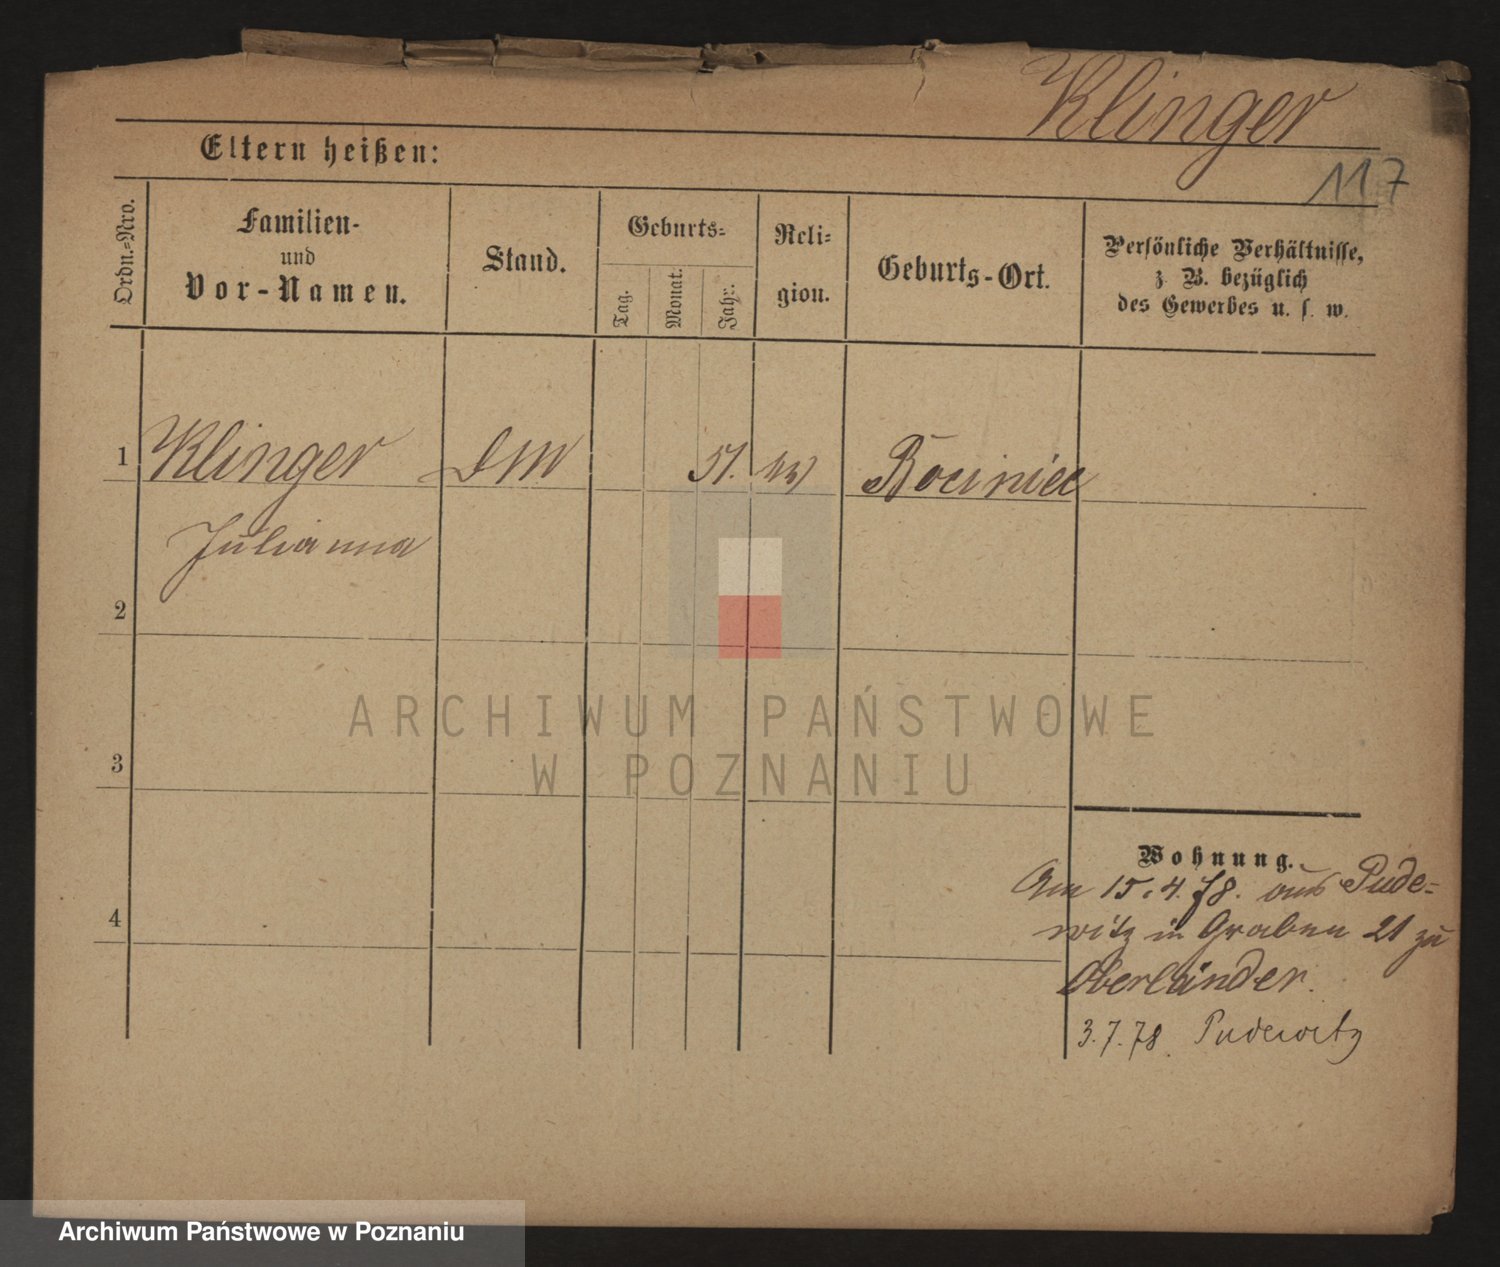 Klinger
117
Eltern heißen:
Ordn.=Nro.
Familien-
und
Vor-Namen.
Stand.
Geburts=
Tag.
Monat.
Jahr.
Reli=
gion.
Geburts-Ort.
Persönliche Verhältnisse,
z. B. bezüglich
des Gewerbes u. s. w.
1 Klinger DM 51. Bociniec
Julianna
2
3
4
Wohnung.
Am 15.4.78. aus Pude=
witz in Graben 21 zu
Oberländer.
3.7.78. Pudewitz
ARCHIWUM PAŃSTWOWE
W POZNANIU
Archiwum Państwowe w Poznaniu